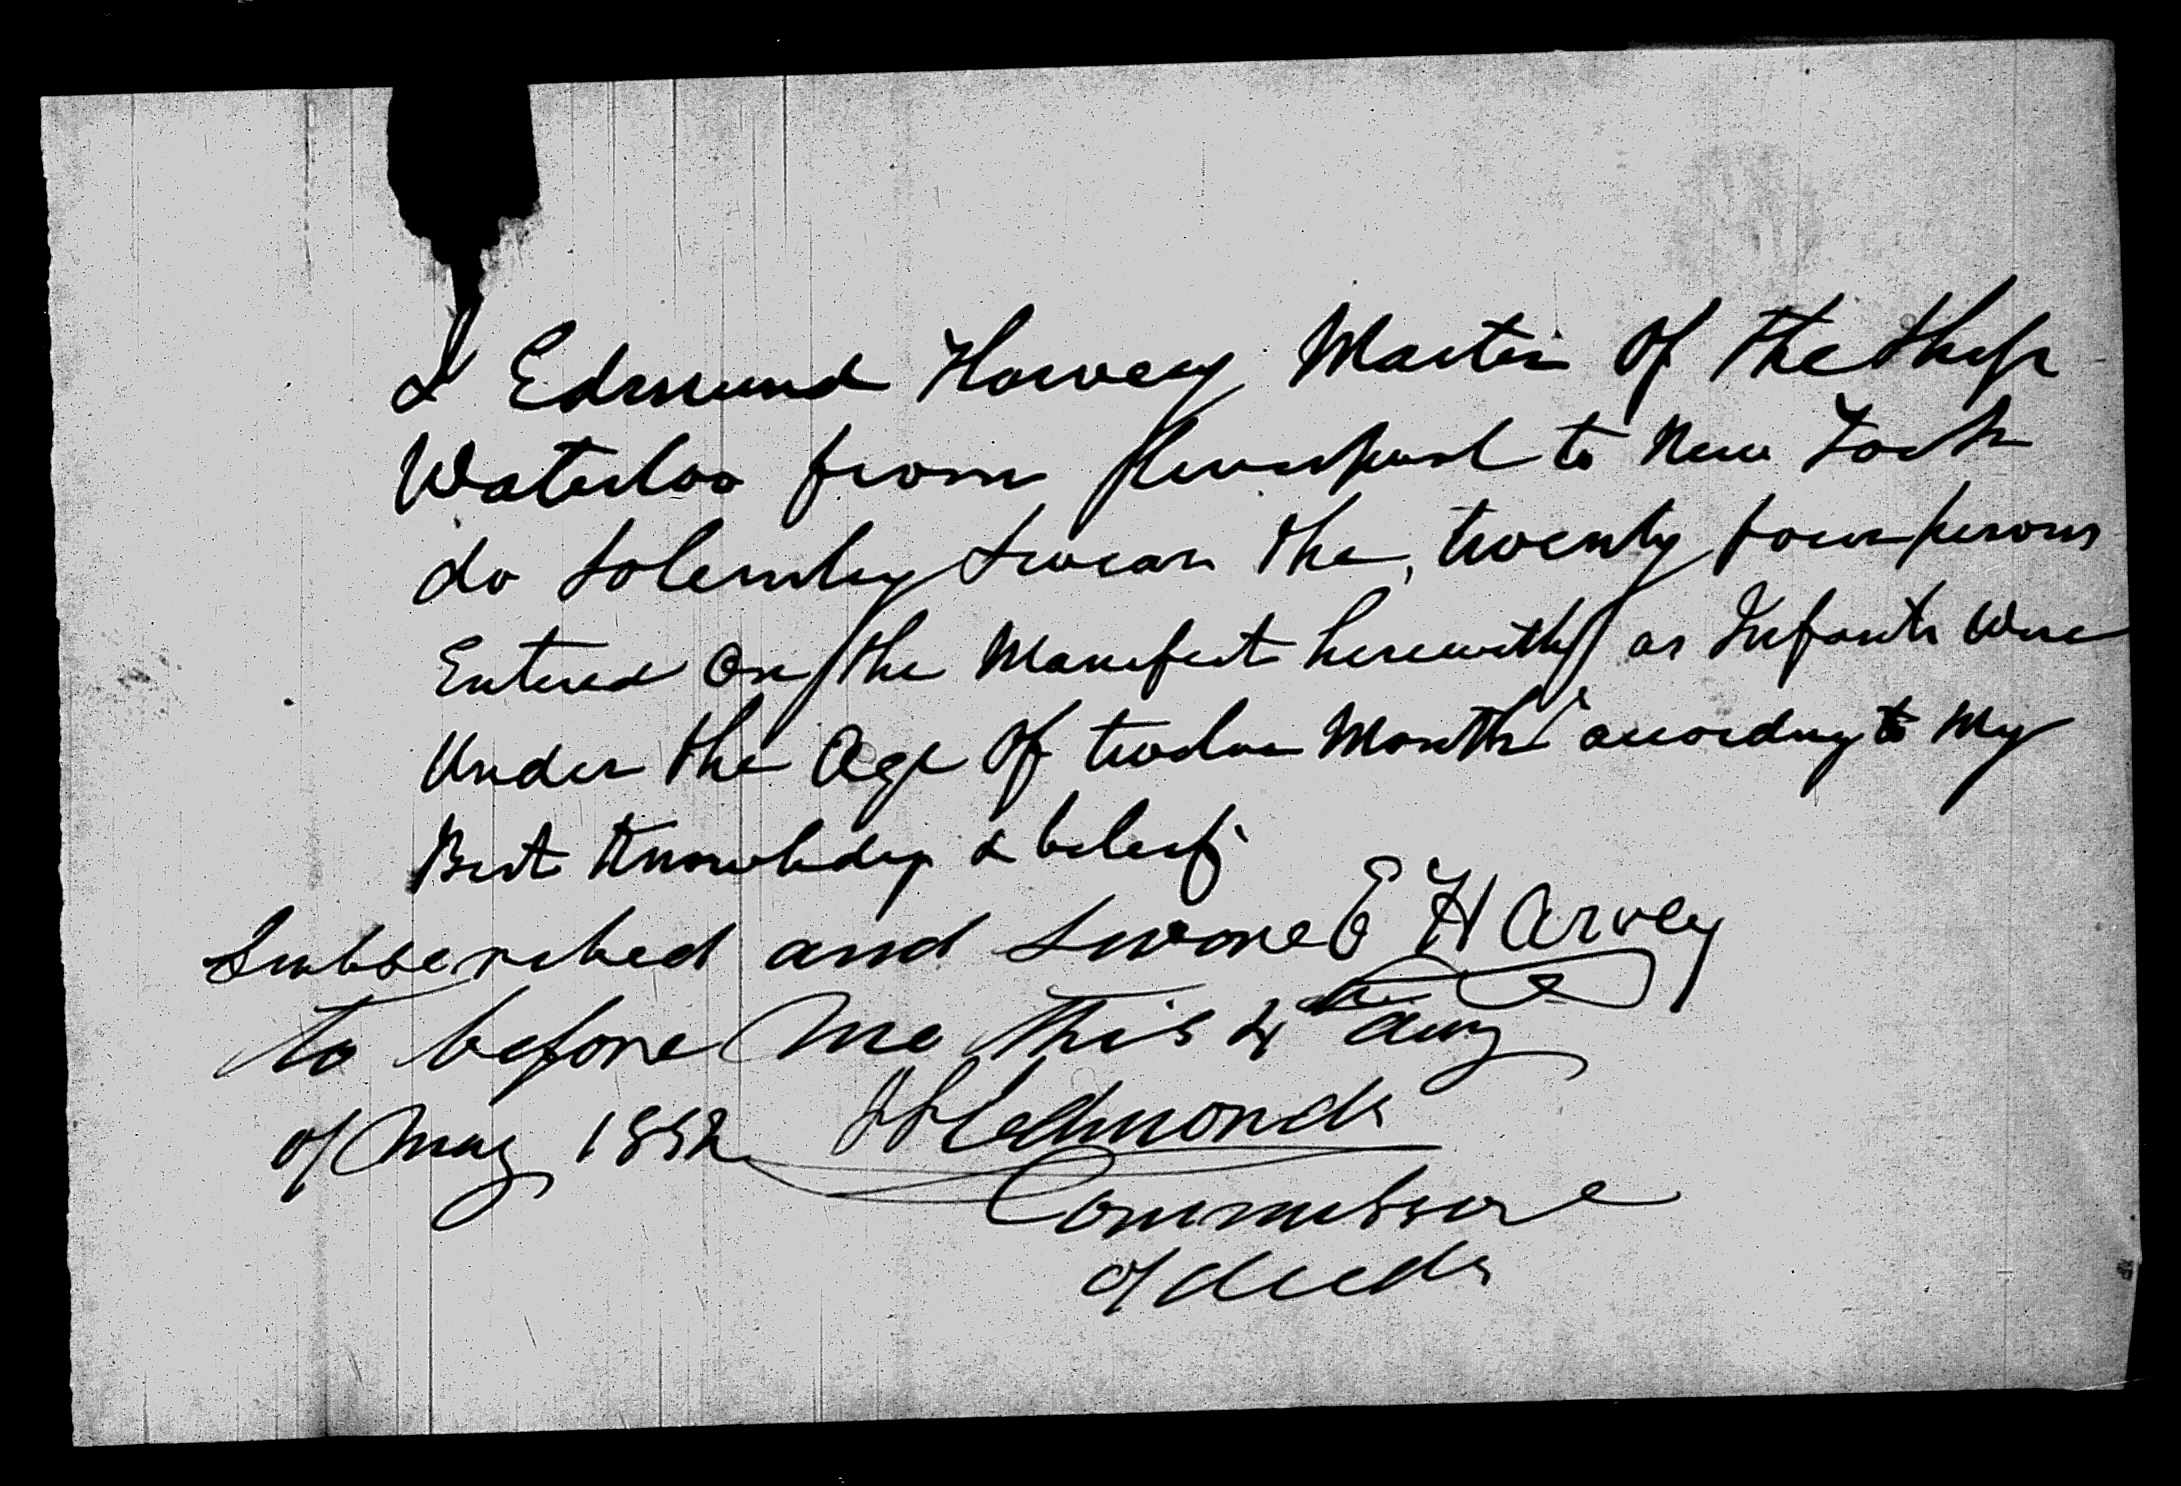 I Edmund Harvey Master Of the Ship
Waterloo from Liverpool to New York
do Solemnley Swear the, twenty four persons
Entered On the Manifest herewith as Infants Were
Under the Age Of twelve Months according to My
Best Knowledge & beleif
Subscribed and Swore E Harvey
to before Me this 4 day
of May 1852 Edmonds
Commissore
of deeds